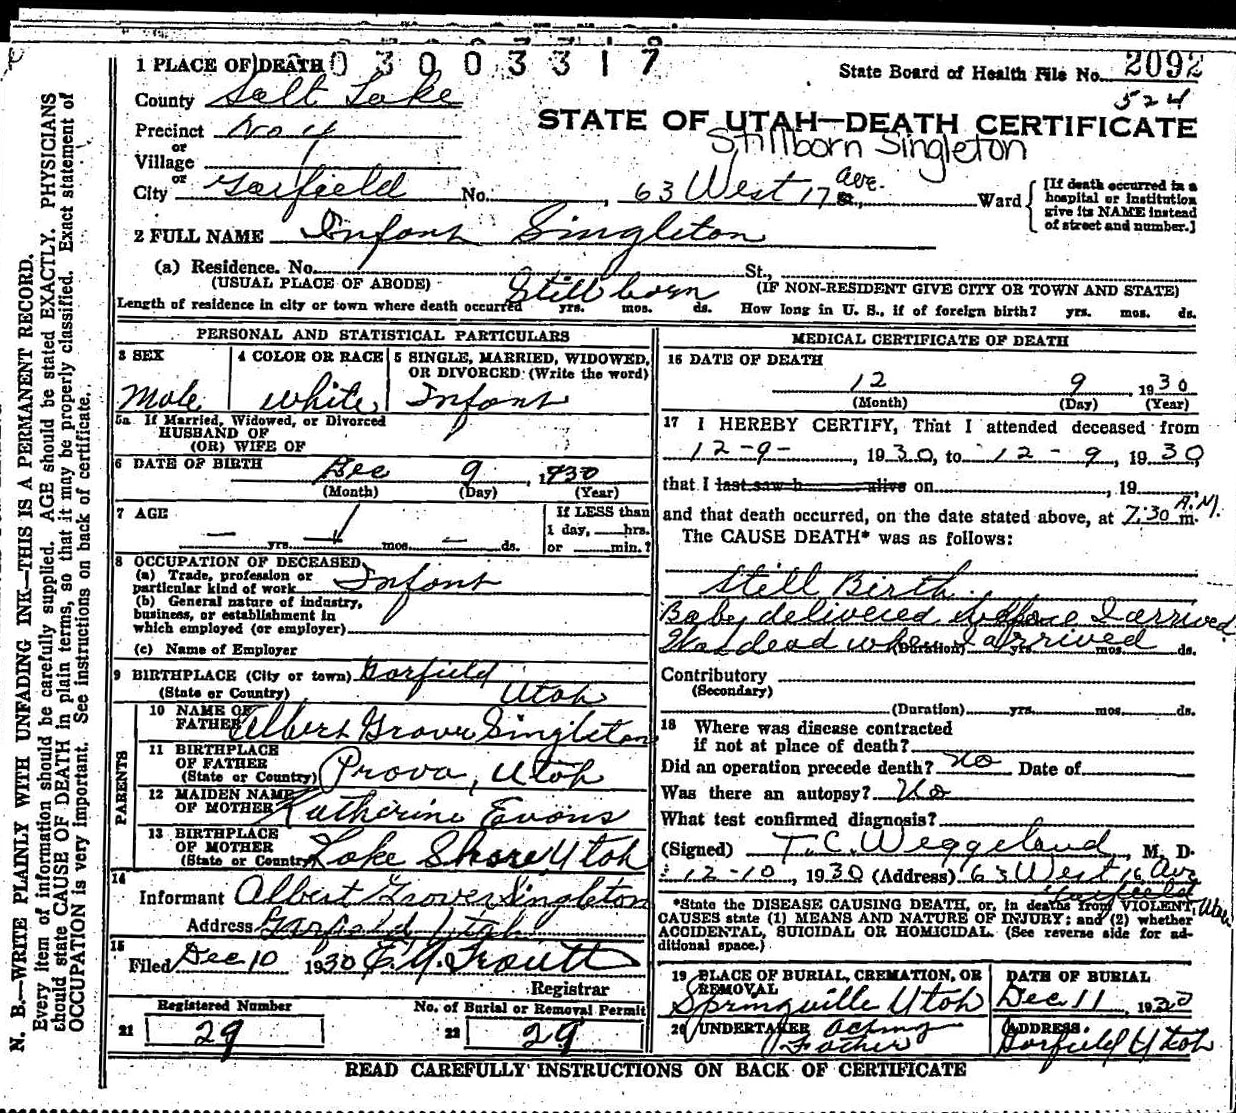 1 PLACE OF DEATH 0 3 0 0 3 3 1 7
State Board of Health File No. 2092
524
County Salt Lake
STATE OF UTAH—DEATH CERTIFICATE
Precinct No 4
or
Stillborn Singleton
Village
or
City Garfield No. , 63 West 17 Ave. St., Ward
[If death occurred in a hospital or institution give its NAME instead of street and number.]
2 FULL NAME Infant Singleton
(a) Residence. No. St.,
(USUAL PLACE OF ABODE) (IF NON-RESIDENT GIVE CITY OR TOWN AND STATE)
Still born
Length of residence in city or town where death occurred yrs. mos. ds. How long in U. S., if of foreign birth? yrs. mos. ds.
PERSONAL AND STATISTICAL PARTICULARS
3 SEX 4 COLOR OR RACE 5 SINGLE, MARRIED, WIDOWED,
OR DIVORCED (Write the word)
Male white Infant
5a If Married, Widowed, or Divorced
HUSBAND OF
(OR) WIFE OF
6 DATE OF BIRTH Dec 9, 1930
(Month) (Day) (Year)
7 AGE If LESS than
1 day, hrs.
— yrs. mos. — ds. or min.?
8 OCCUPATION OF DECEASED
(a) Trade, profession or
particular kind of work Infant
(b) General nature of industry,
business, or establishment in
which employed (or employer)
(c) Name of Employer
9 BIRTHPLACE (City or town) Garfield
(State or Country) Utah
PARENTS
10 NAME OF
FATHER Albert Grover Singleton
11 BIRTHPLACE
OF FATHER
(State or Country) Provo, Utah
12 MAIDEN NAME
OF MOTHER Katherine Evans
13 BIRTHPLACE
OF MOTHER
(State or Country) Lake Shore, Utah
14
Informant Albert Grover Singleton
Address Garfield Utah
15
Filed Dec 10 1930 Troutt
Registrar
Registered Number No. of Burial or Removal Permit
21 29 22 29
MEDICAL CERTIFICATE OF DEATH
16 DATE OF DEATH
12 9, 1930
(Month) (Day) (Year)
17 I HEREBY CERTIFY, That I attended deceased from
12-9-, 1930, to 12-9, 1930,
that I last saw h alive on , 19
and that death occurred, on the date stated above, at 7:30 A.M. m.
The CAUSE DEATH* was as follows:
Still Birth.
Baby delivered before I arrived
Was dead when I arrived
(Duration) yrs. mos. ds.
Contributory
(Secondary)
(Duration) yrs. mos. ds.
18 Where was disease contracted
if not at place of death?
Did an operation precede death? No Date of
Was there an autopsy? No
What test confirmed diagnosis?
(Signed) T. C. Weggeland, M. D.
12-10, 1930 (Address) 63 West 16 Ave
Garfield Utah
*State the DISEASE CAUSING DEATH, or, in deaths from VIOLENT
CAUSES state (1) MEANS AND NATURE OF INJURY; and (2) whether
ACCIDENTAL, SUICIDAL OR HOMICIDAL. (See reverse side for ad-
ditional space.)
19 PLACE OF BURIAL, CREMATION, OR DATE OF BURIAL
REMOVAL
Springville Utah Dec 11, 1930
20 UNDERTAKER Acting ADDRESS.
Father Garfield Utah
READ CAREFULLY INSTRUCTIONS ON BACK OF CERTIFICATE
N. B.—WRITE PLAINLY WITH UNFADING INK—THIS IS A PERMANENT RECORD.
Every item of information should be carefully supplied. AGE should be stated EXACTLY. PHYSICIANS
should state CAUSE OF DEATH in plain terms, so that it may be properly classified. Exact statement of
OCCUPATION is very important. See instructions on back of certificate.